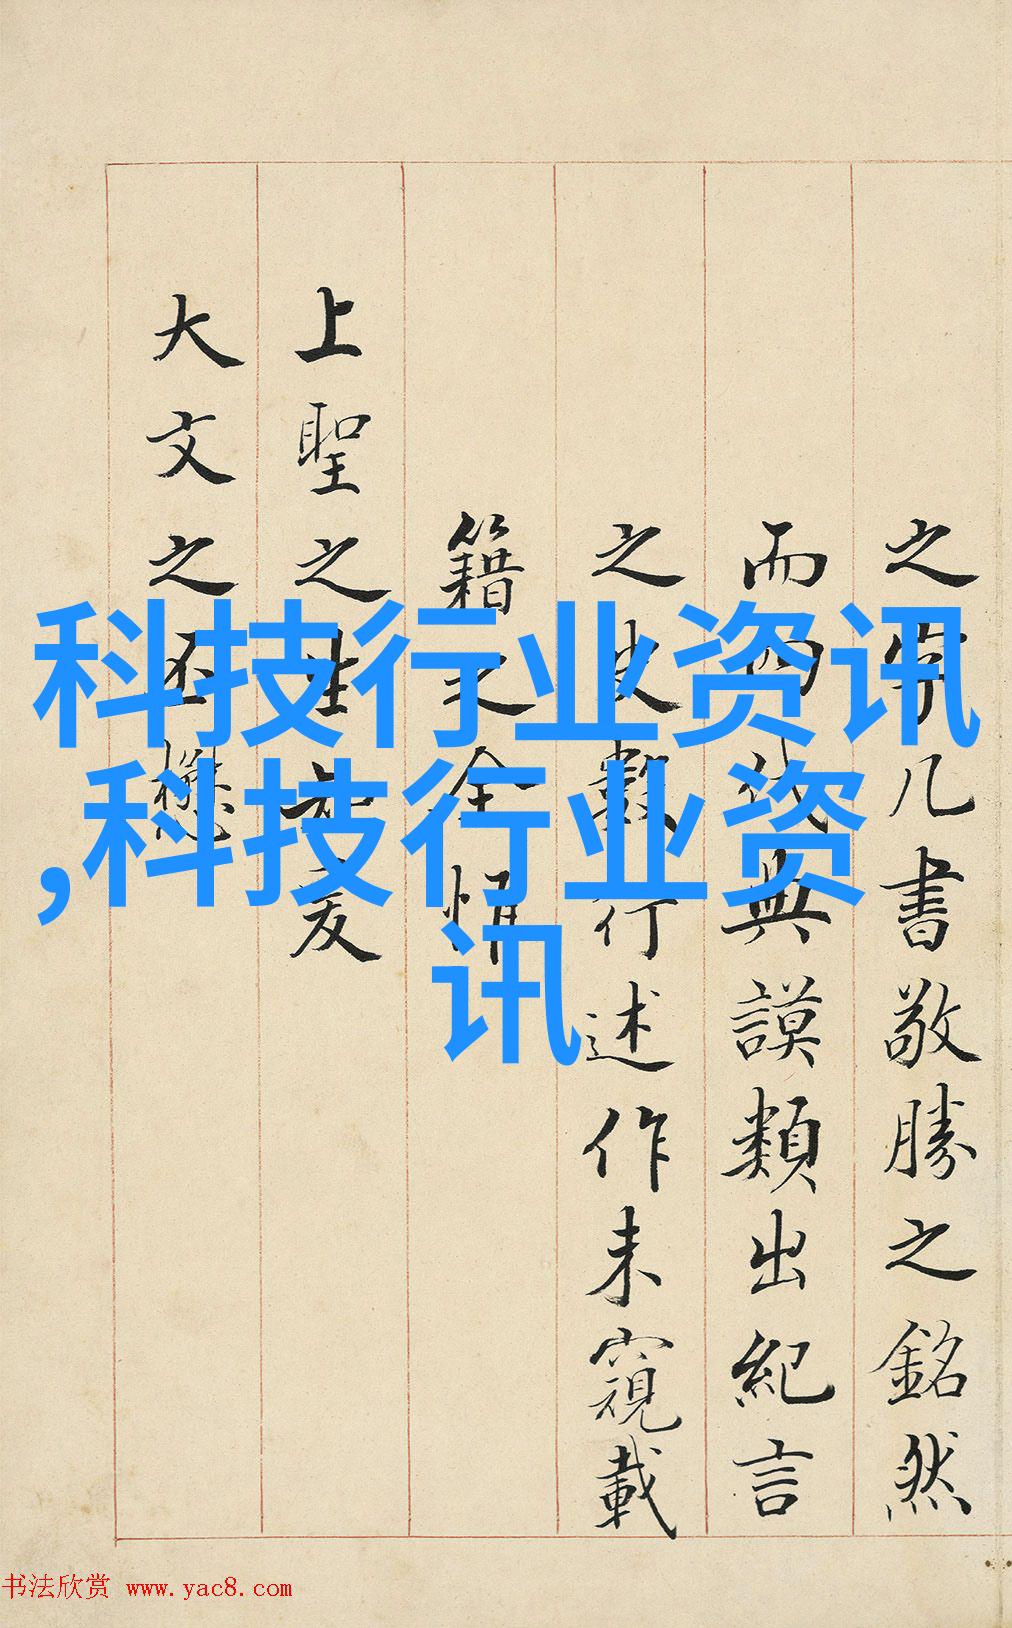 之几書敬勝之銘然
而四代典謨類出紀言
之史數行述作未窺載
籍之全
上聖之
大文之丕
科技行业资讯
,科技行业资
讯
书法欣赏 www.yac8.com